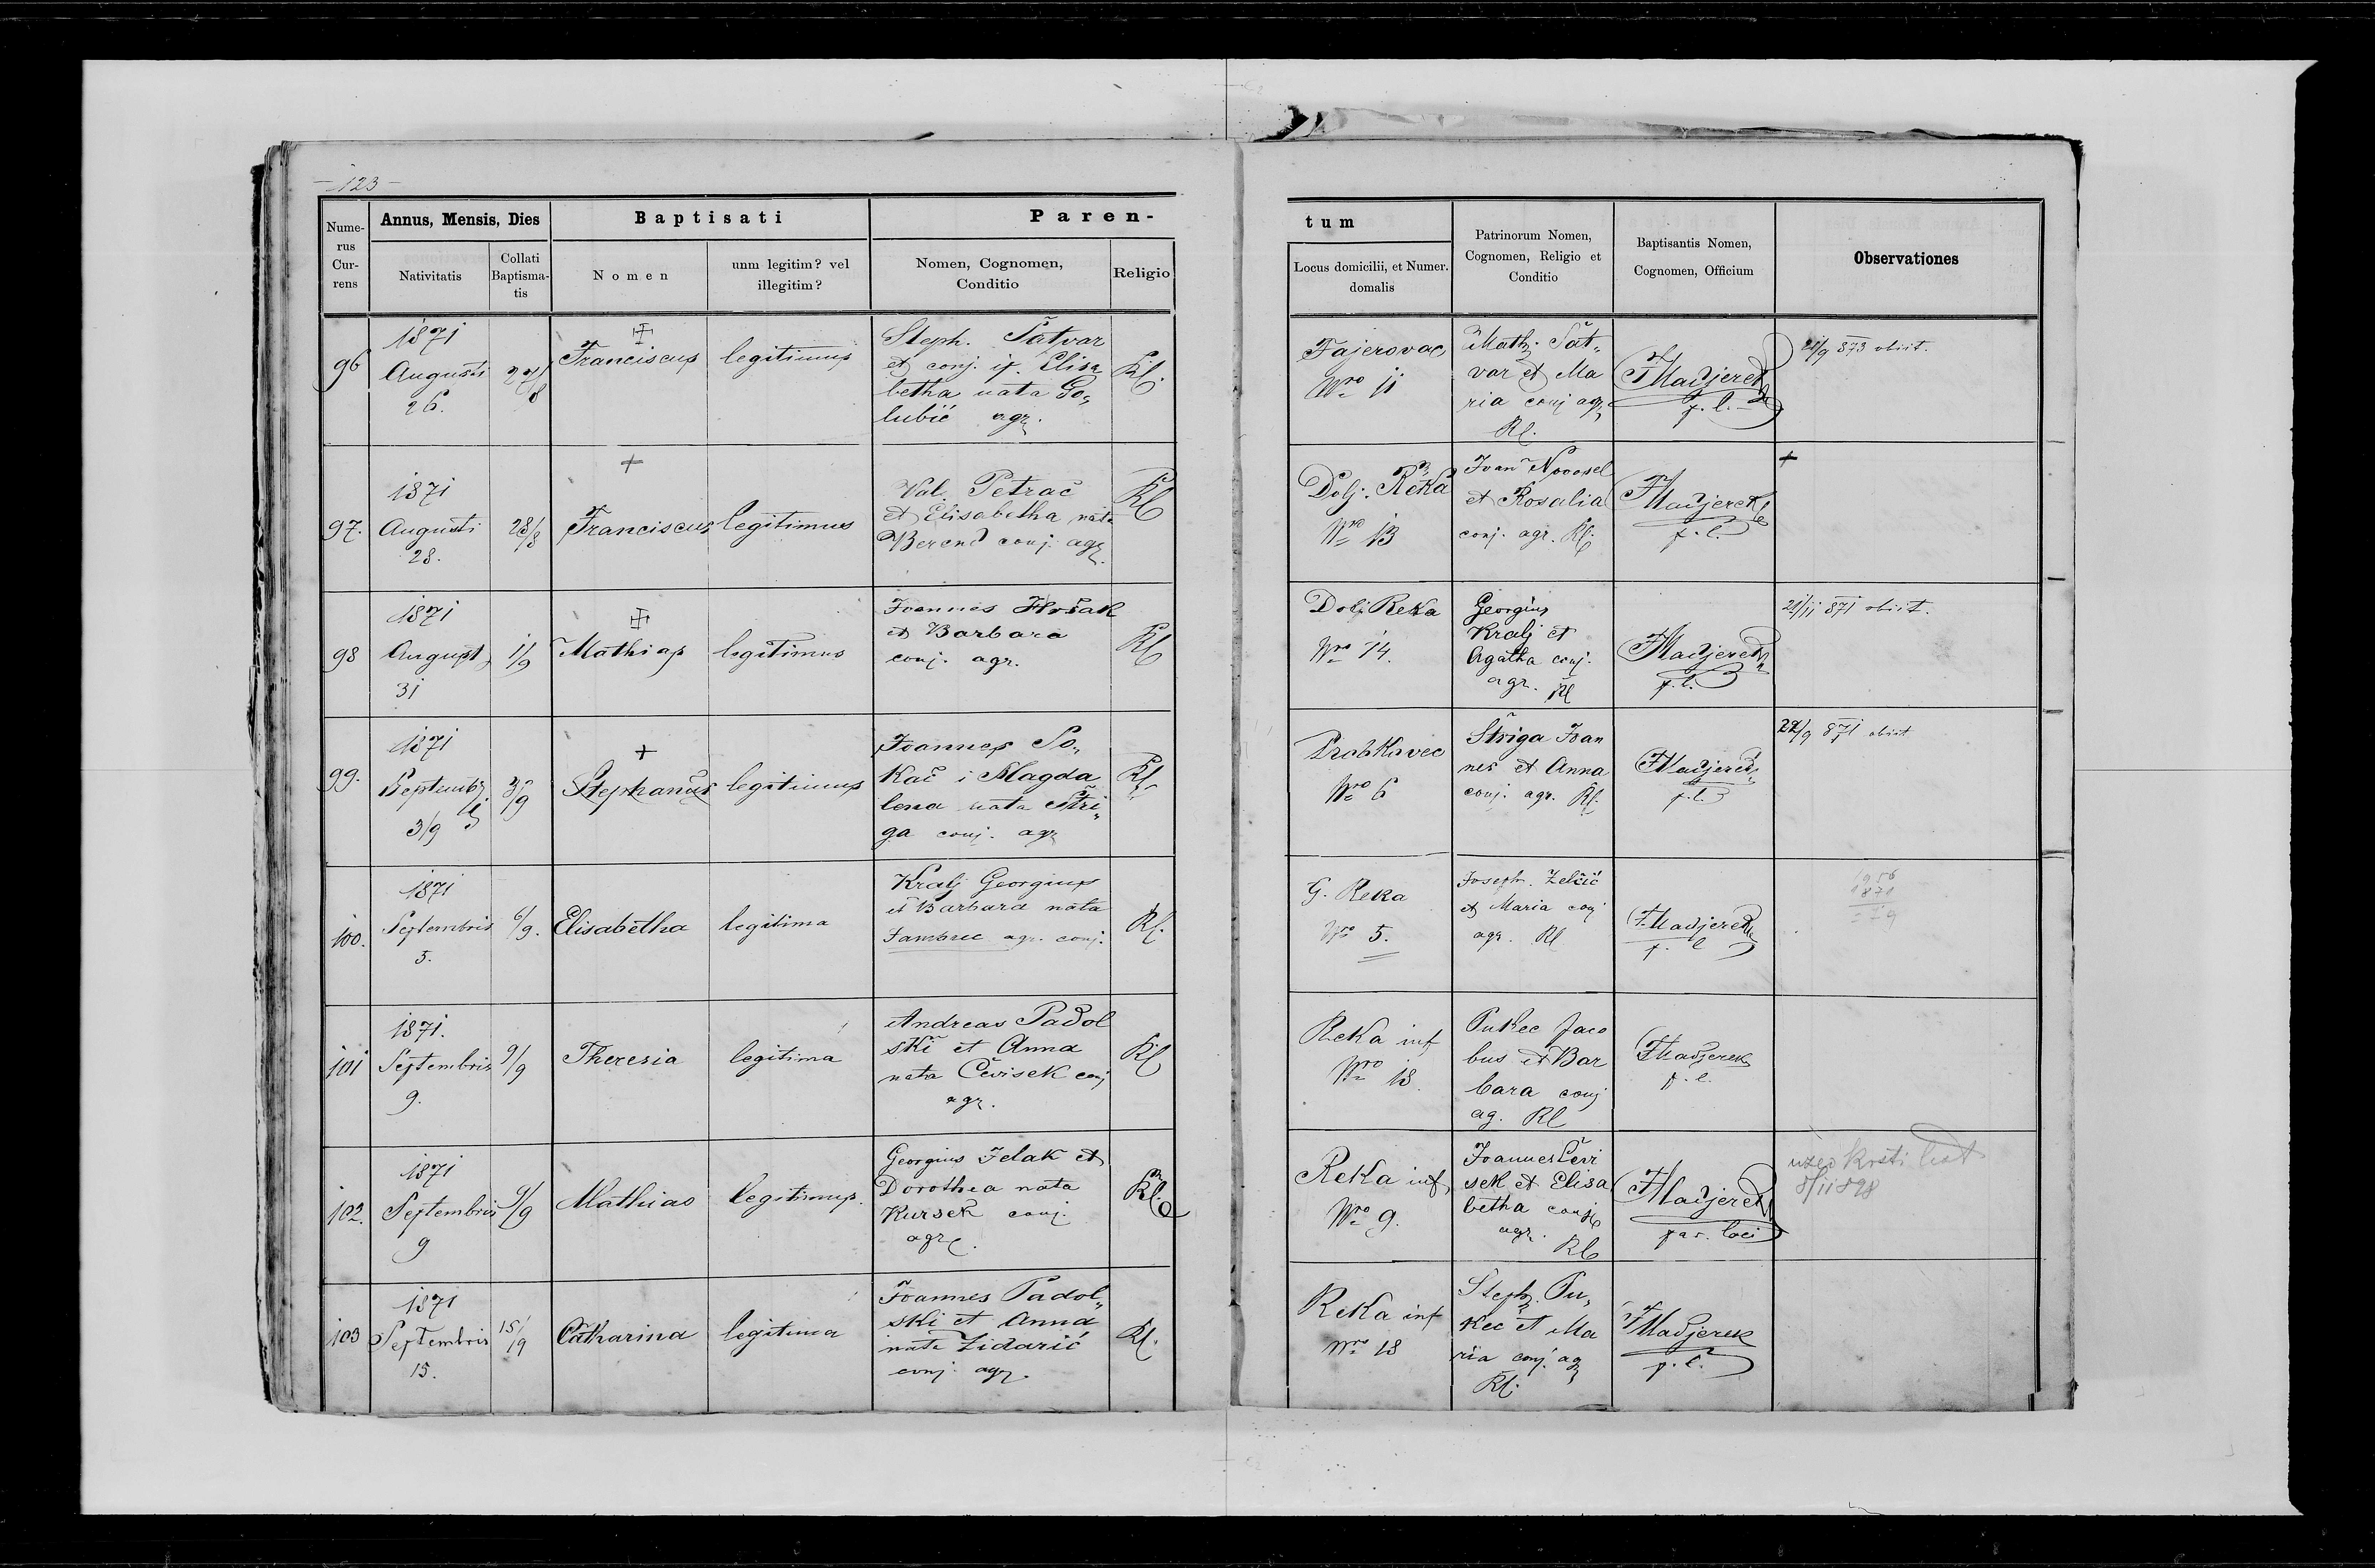 123
Annus, Mensis, Dies
Baptisati
Paren-
Nume-
rus
Cur-
rens
Nativitatis
Collati
Baptisma-
tis
Nomen
unm legitim? vel
illegitim?
Nomen, Cognomen,
Conditio
Religio
tum
Locus domicilii, et Numer.
domalis
Patrinorum Nomen,
Cognomen, Religio et
Conditio
Baptisantis Nomen,
Cognomen, Officium
Observationes
96
1871
Augusti
26.
27/8
Franciscus
legitimus
Steph. Šatvar
et conj. ej. Elisa
betha nata Go„
lubić agr.
Rl.
Fajerovac
Nro 11
Math. Šat„
var et Ma
ria conj agr
Rl.
F Madjerek
p. l.
21/9 873 obiit.
97.
1871
Augusti
28.
28/8
+
Franciscus
legitimus
Val. Petrač
et Elisabetha nata
Berend conj. agr.
Rl
Dolj. Reka
Nro 13
Ivan Novosel
et Rosalia
conj. agr. Rl.
F Madjerek
p. l.
+
98
1871
August
31
1/9
Mathias
legitimus
Joannes Hošak
et Barbara
conj. agr.
Rl
Dolj Reka
Nro 14.
Georgius
Kralj et
Agatha conj.
agr. Rl
F Madjerek
p. l.
21/11 871 obiit.
99.
1871
Septemb
3/9
3/9
+
Stephanus
legitimus
Joannes So„
kač i Magda
lena nata Štri„
ga conj. agr
Rl.
Prabkovec
Nro 6
Štriga Joan
nes et Anna
conj. agr. Rl.
F Madjerek
p. l.
22/9 871 obiit
100.
1871
Septembris
5.
6/9.
Elisabetha
legitima
Kralj Georgius
et Barbara nata
Jambrec agr. conj.
Rl.
G. Reka
Nro 5.
Joseph. Zelčić
et Maria conj
agr. Rl
F Madjerek
p. l
1956
1871
= 79
101
1871.
Septembris
9.
9/9
Theresia
legitima
Andreas Padol
ski et Anna
nata Čevisek conj
agr.
Rl
Reka inf
Nro 18.
Pukec Jaco
bus et Bar
bara conj
ag. Rl
F Madjerek
p. l.
102.
1871
Septembris
9
9/9
Mathias
legitimus.
Georgius Jelak et
Dorothea nata
Kursek conj.
agr.
Rl.
Reka inf
Nro 9.
Joannes Čevi
sek et Elisa
betha conj
agr.
Rl
F Madjerek
par. loci
uzeo krsti list
8/11 898
103
1871
Septembris
15.
15/19
Catharina
legitima
Joannes Padol„
ski et Anna
nata Zidarić
conj. agr.
Rl.
Reka inf
Nro 18
Steph. Pu„
kec et Ma
ria conj. ag
Rl.
F Madjerek
p. l.